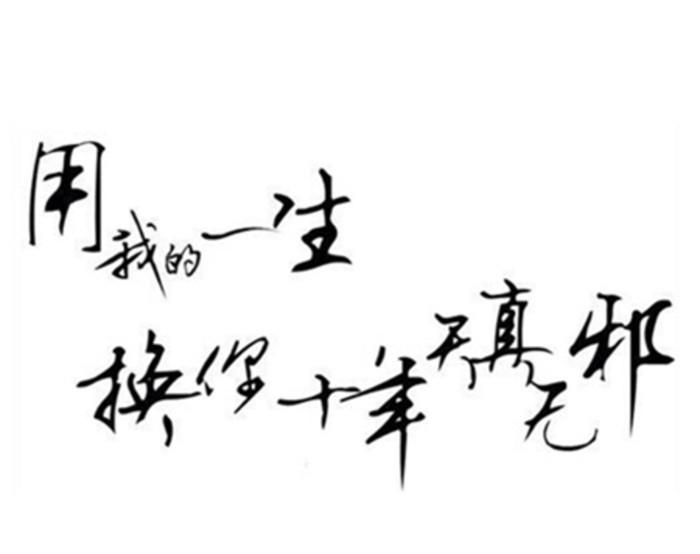 用我的一生
换你十年天真无邪